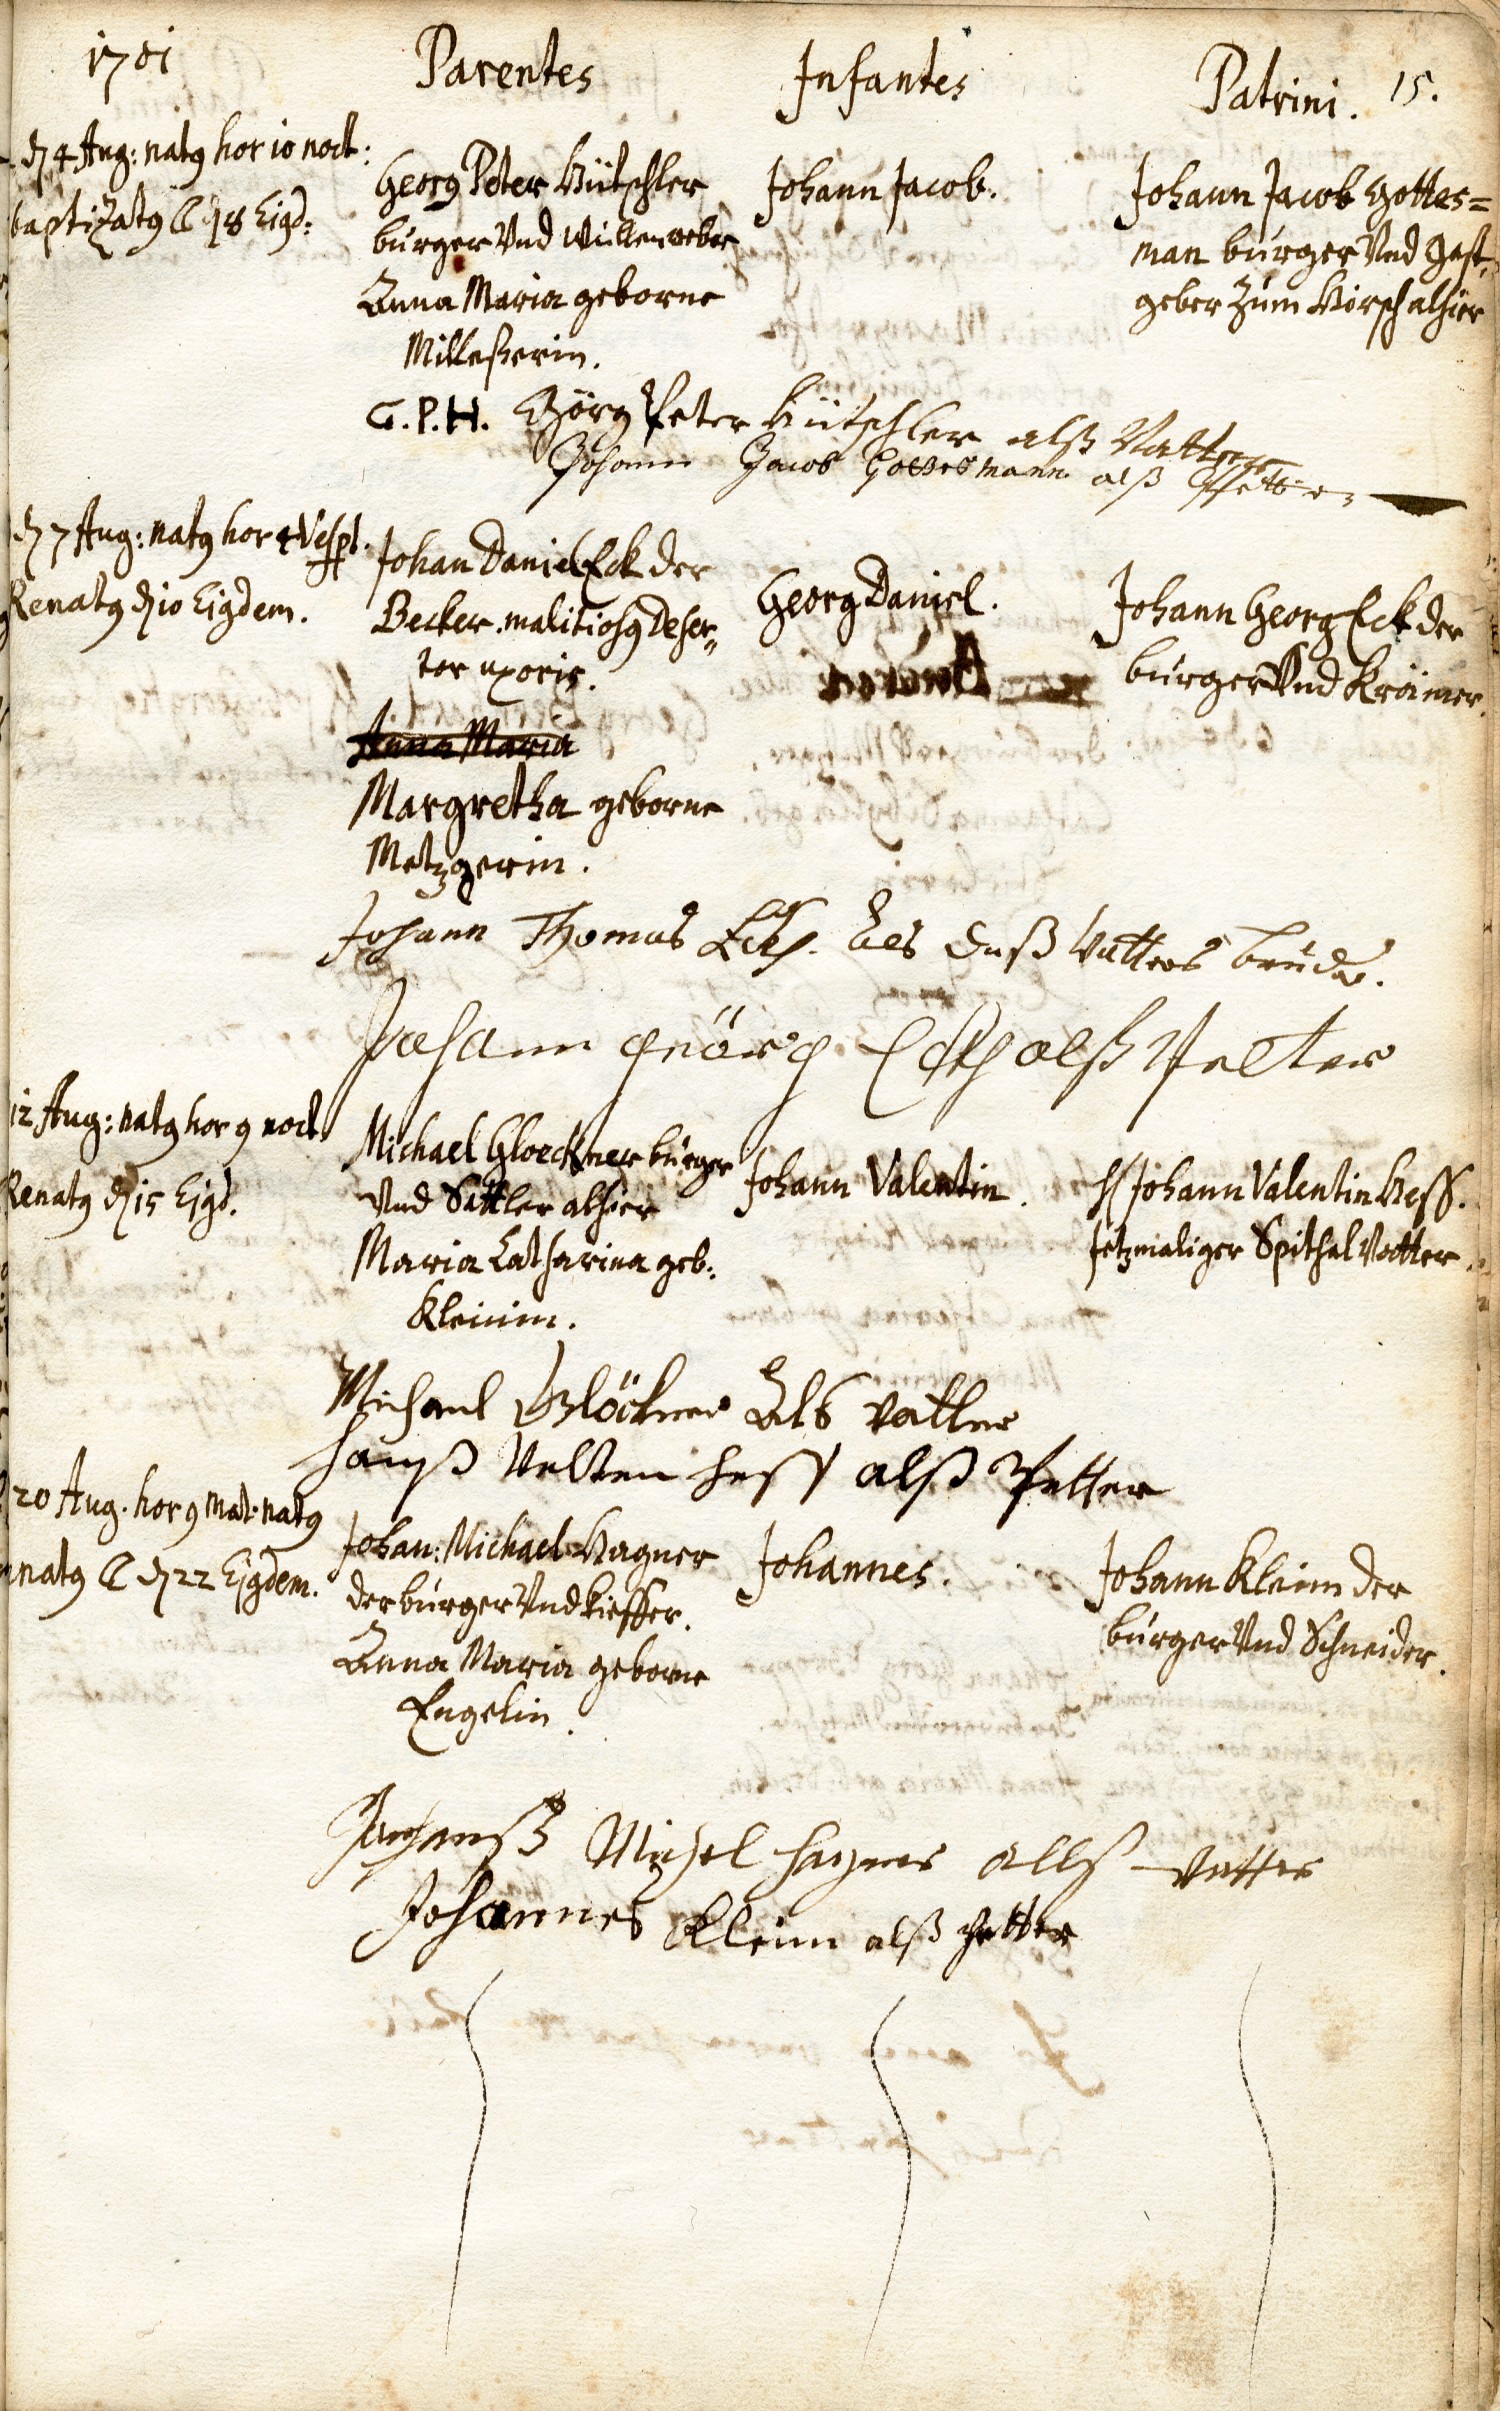 1701
Parentes
Infantes
Patrini.
15.
d 4 Aug: natq hor 10 noct:
baptizatq d 8 Eigd:
Georg Peter Hütschler
burger Vnd Wüllenweber
Anna Maria geborne
Milleßerin.
Johann Jacob.
Johann Jacob Gottes=
man burger Vnd Gast,
geber Zum Hirsch alhier
G. P. H. Görg Peter Hütschler alß Vatter
Johann Jacob Gottesmann alß Pfetter
d 7 Aug: natq hor 4 Vesp.
Renatq d 10 Eigdem.
Johan Daniel Eck der
Becker. malitiosq deser„
tor uxoris.
Anna Maria
Margretha geborne
Metzgerin.
Georg Daniel.
Johann Georg Eck der
burger Vnd Krämer.
Johann Thomas Eckh. als deß Vatters bruder.
Johann Geörg Eckh alß Petter
12 Aug: natq hor 9 noct.
Renatq d 15 Eigd.
Michael Gloeckner burger
Vnd Sattler alhier
Maria Catharina geb.
Kleinin.
Johann Valentin.
H Johann Valentin Hess.
jetzmaliger Spithal Vatter.
Michael Glöckner Als Vatter
Hanß Velten Hess alß Petter
20 Aug. hor 9 mat. natq
natq d 22 Ejgdem.
Johan: Michael Hagner
der burger Vnd Kieffer.
Anna Maria geborne
Engelin.
Johannes.
Johann Kleinn der
burger Vnd Schneider.
Johannß Michel Hagner allß Vatter
Johannes Kleinn alß Petter